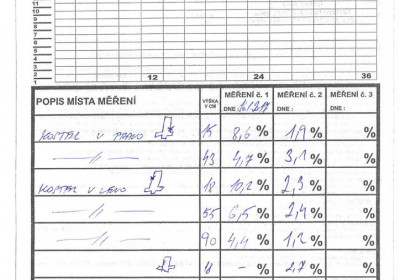 11
10
9
8
7
6
5
4
3
2
1
12 24 36
POPIS MÍSTA MĚŘENÍ VÝŠKA V CM MĚŘENÍ č. 1 DNE: MĚŘENÍ č. 2 DNE: MĚŘENÍ č. 3 DNE:
V PRAVO 15 8,6 % 1,9 % %
—//— 43 4,7 % 3,1 % %
V LEVO 18 10,2 % 2,3 % %
—//— 55 6,5 % 2,4 % %
—//— 90 4,4 % 1,2 % %
- % 2,7 % %